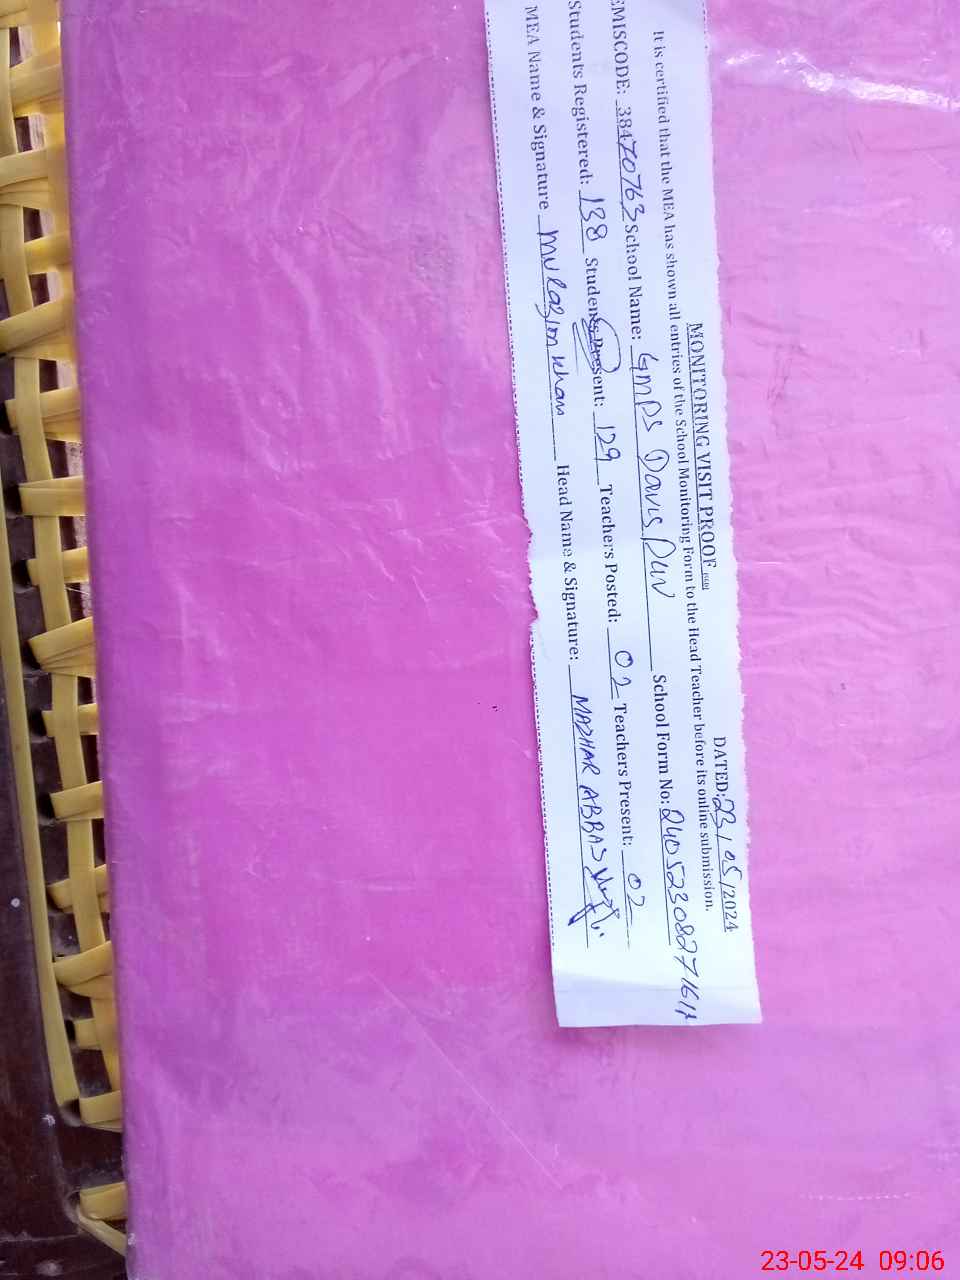 MONITORING VISIT PROOF
DATED: 23/05/2024
It is certified that the MEA has shown all entries of the School Monitoring Form to the Head Teacher before its online submission.
EMISCODE: 38470763 School Name: GMPS School Form No:
Students Registered: 138 Students Present: 129 Teachers Posted: 02 Teachers Present: 02
MEA Name & Signature Khan Head Name & Signature: MAZHAR ABBAS
23-05-24 09:06